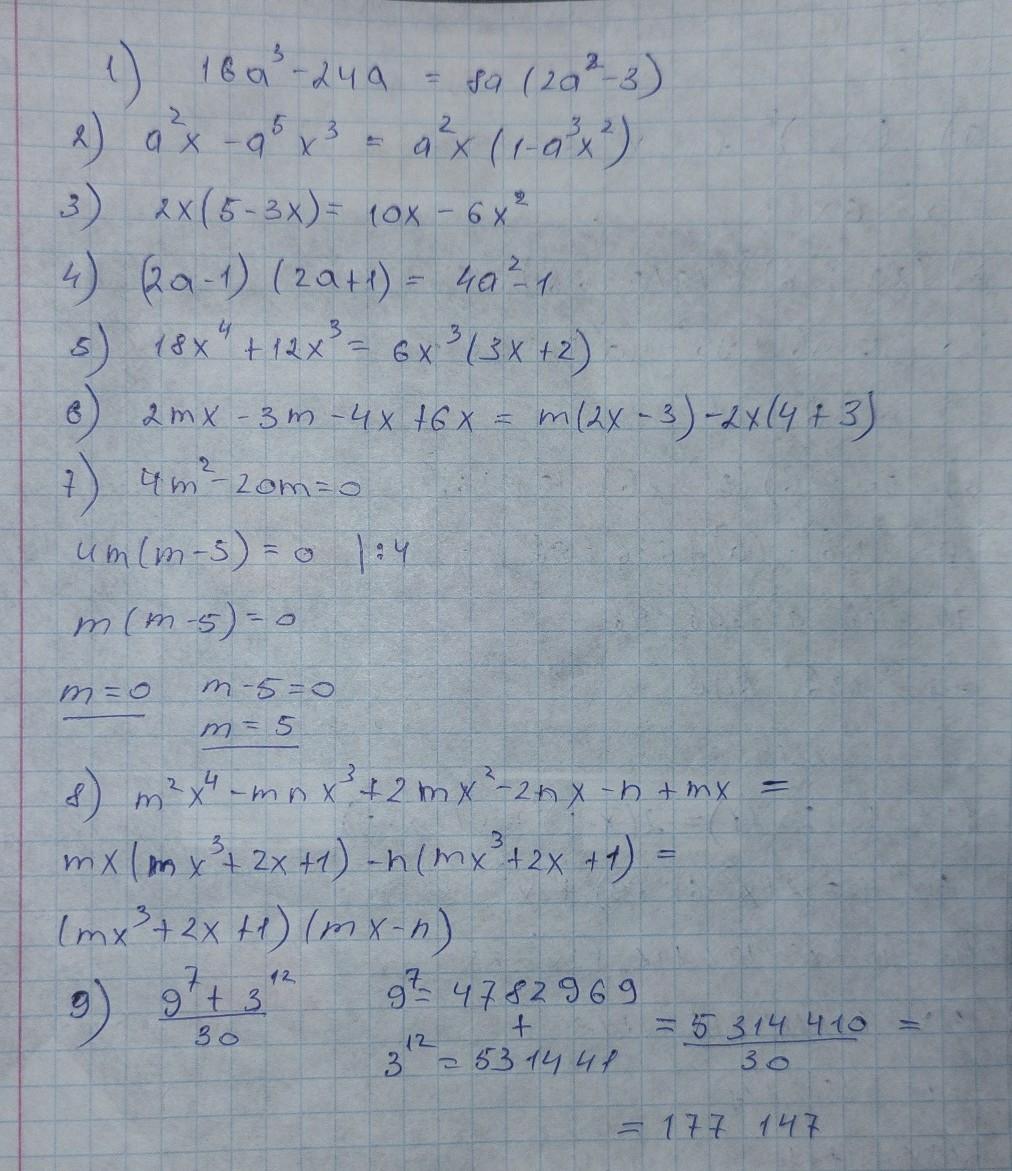 1) 16a³ - 24a = 8a (2a² - 3)
2) a²x - a⁵x³ = a²x (1 - a³x²)
3) 2x(5 - 3x) = 10x - 6x²
4) (2a - 1) (2a + 1) = 4a² - 1
5) 18x⁴ + 12x³ = 6x³(3x + 2)
6) 2mx - 3m - 4x + 6x = m(2x - 3) - 2x(4 + 3)
7) 4m² - 20m = 0
4m(m - 5) = 0 | : 4
m(m - 5) = 0
m = 0 m - 5 = 0
m = 5
8) m²x⁴ - mnx³ + 2mx² - 2nx - n + mx =
mx(mx³ + 2x + 1) - n(mx³ + 2x + 1) =
(mx³ + 2x + 1) (mx - n)
9) (9⁷ + 3¹²)/30 9⁷ = 4782969 + 3¹² = 531441 = 5 314 410/30 =
= 177 147